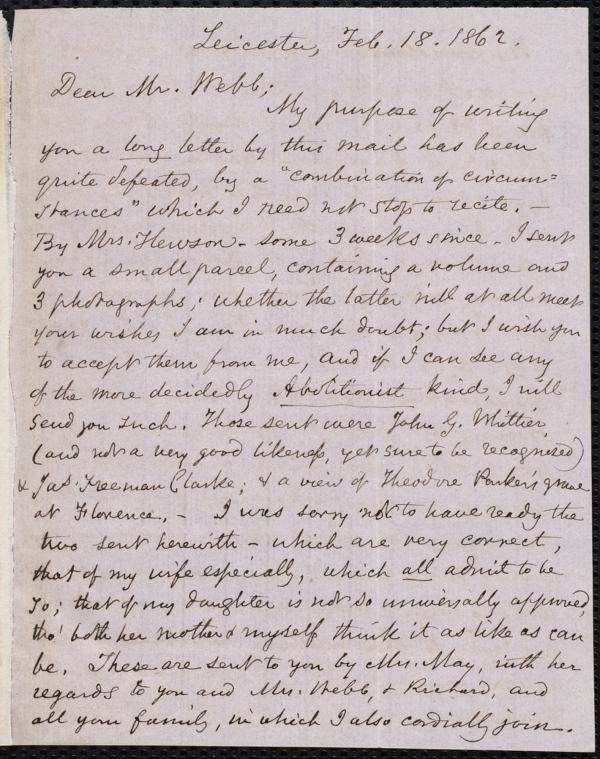 Leicester, Feb. 18. 1862.
Dear Mr. Webb;
My purpose of writing
you a long letter by this mail has been
quite defeated, by a "combination of circum=
stances" which I need not stop to recite. —
By Mrs. Hewson - some 3 weeks since - I sent
you a small parcel, containing a volume and
3 photographs; whether the latter will at all meet
your wishes I am in much doubt; but I wish you
to accept them from me, and if I can see any
of the more decidedly Abolitionist kind, I will
send you such. Those sent were John G. Whittier
(and not a very good likeness, yet sure to be recognized)
& Jas. Freeman Clarke; & a view of Theodore Parker's grave
at Florence. - I was sorry not to have ready the
two sent herewith - which are very correct,
that of my wife especially, which all admit to be
so; that of my daughter is not so universally approved,
tho' both her mother & myself think it as like as can
be. These are sent to you by Mrs. May, with her
regards to you and Mrs. Webb, & Richard, and
all your family, in which I also cordially join.